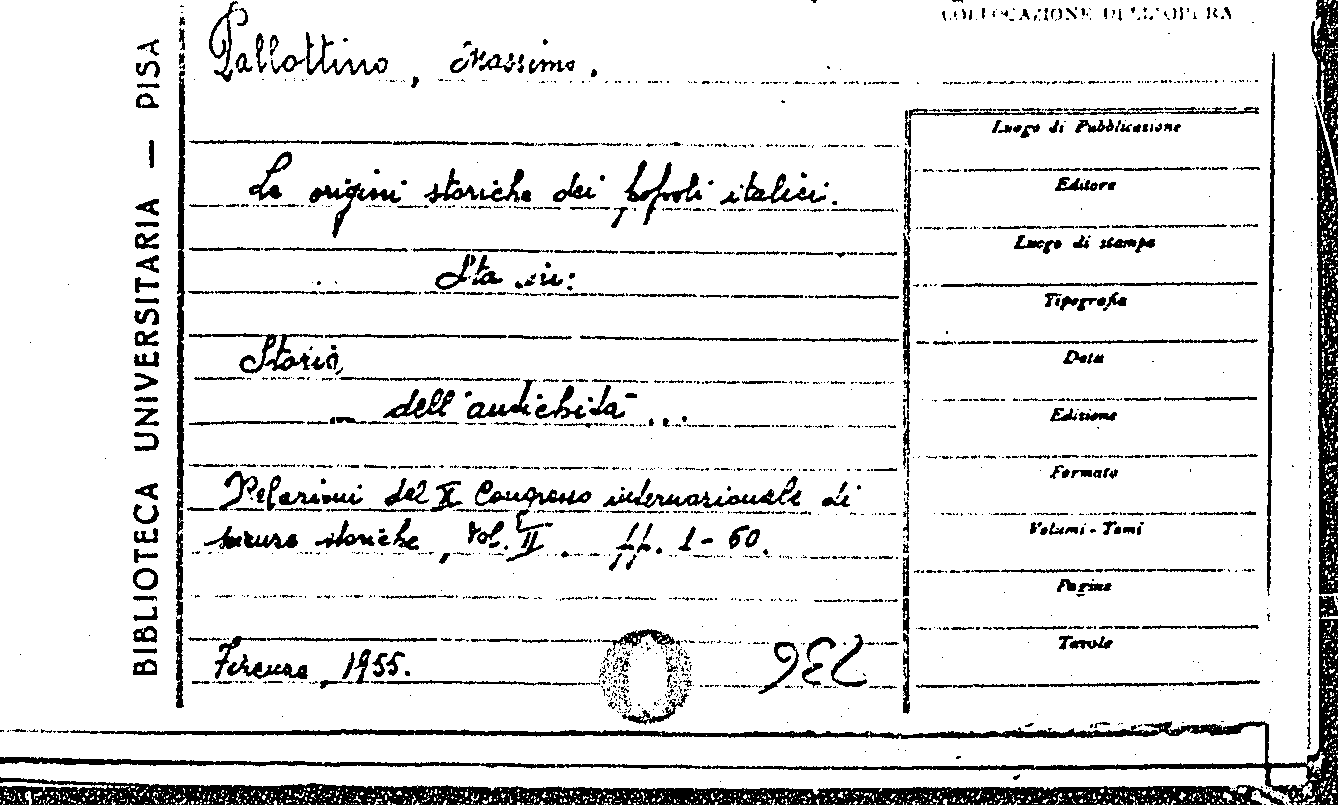 COLLOCAZIONE DELL'OPERA
BIBLIOTECA UNIVERSITARIA — PISA
Pallottino, Massimo.
Le origini storiche dei popoli italici.
Sta in:
Storia
dell'antichità...
Relazioni del X Congresso internazionale di
scienze storiche, vol. II. pp. 1-60.
Firenze, 1955.
Luogo di Pubblicazione
Editore
Luogo di stampa
Tipografia
Data
Edizione
Formato
Volumi - Tomi
Pagine
Tavole